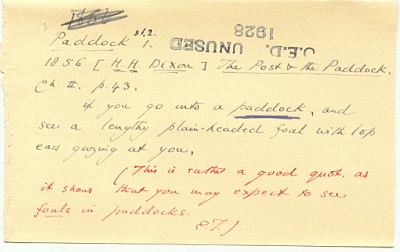 Paddock sb.2 1.
O.E.D. UNUSED
1928
1856 [H.H Dixon] The Post & the Paddock.
Ch. II. p. 43.
If you go into a paddock, and
see a lengthy plain-headed foal with lop
ears gazing at you,
(This is rather a good quot. as
it shows that you may expect to see
foals in paddocks.